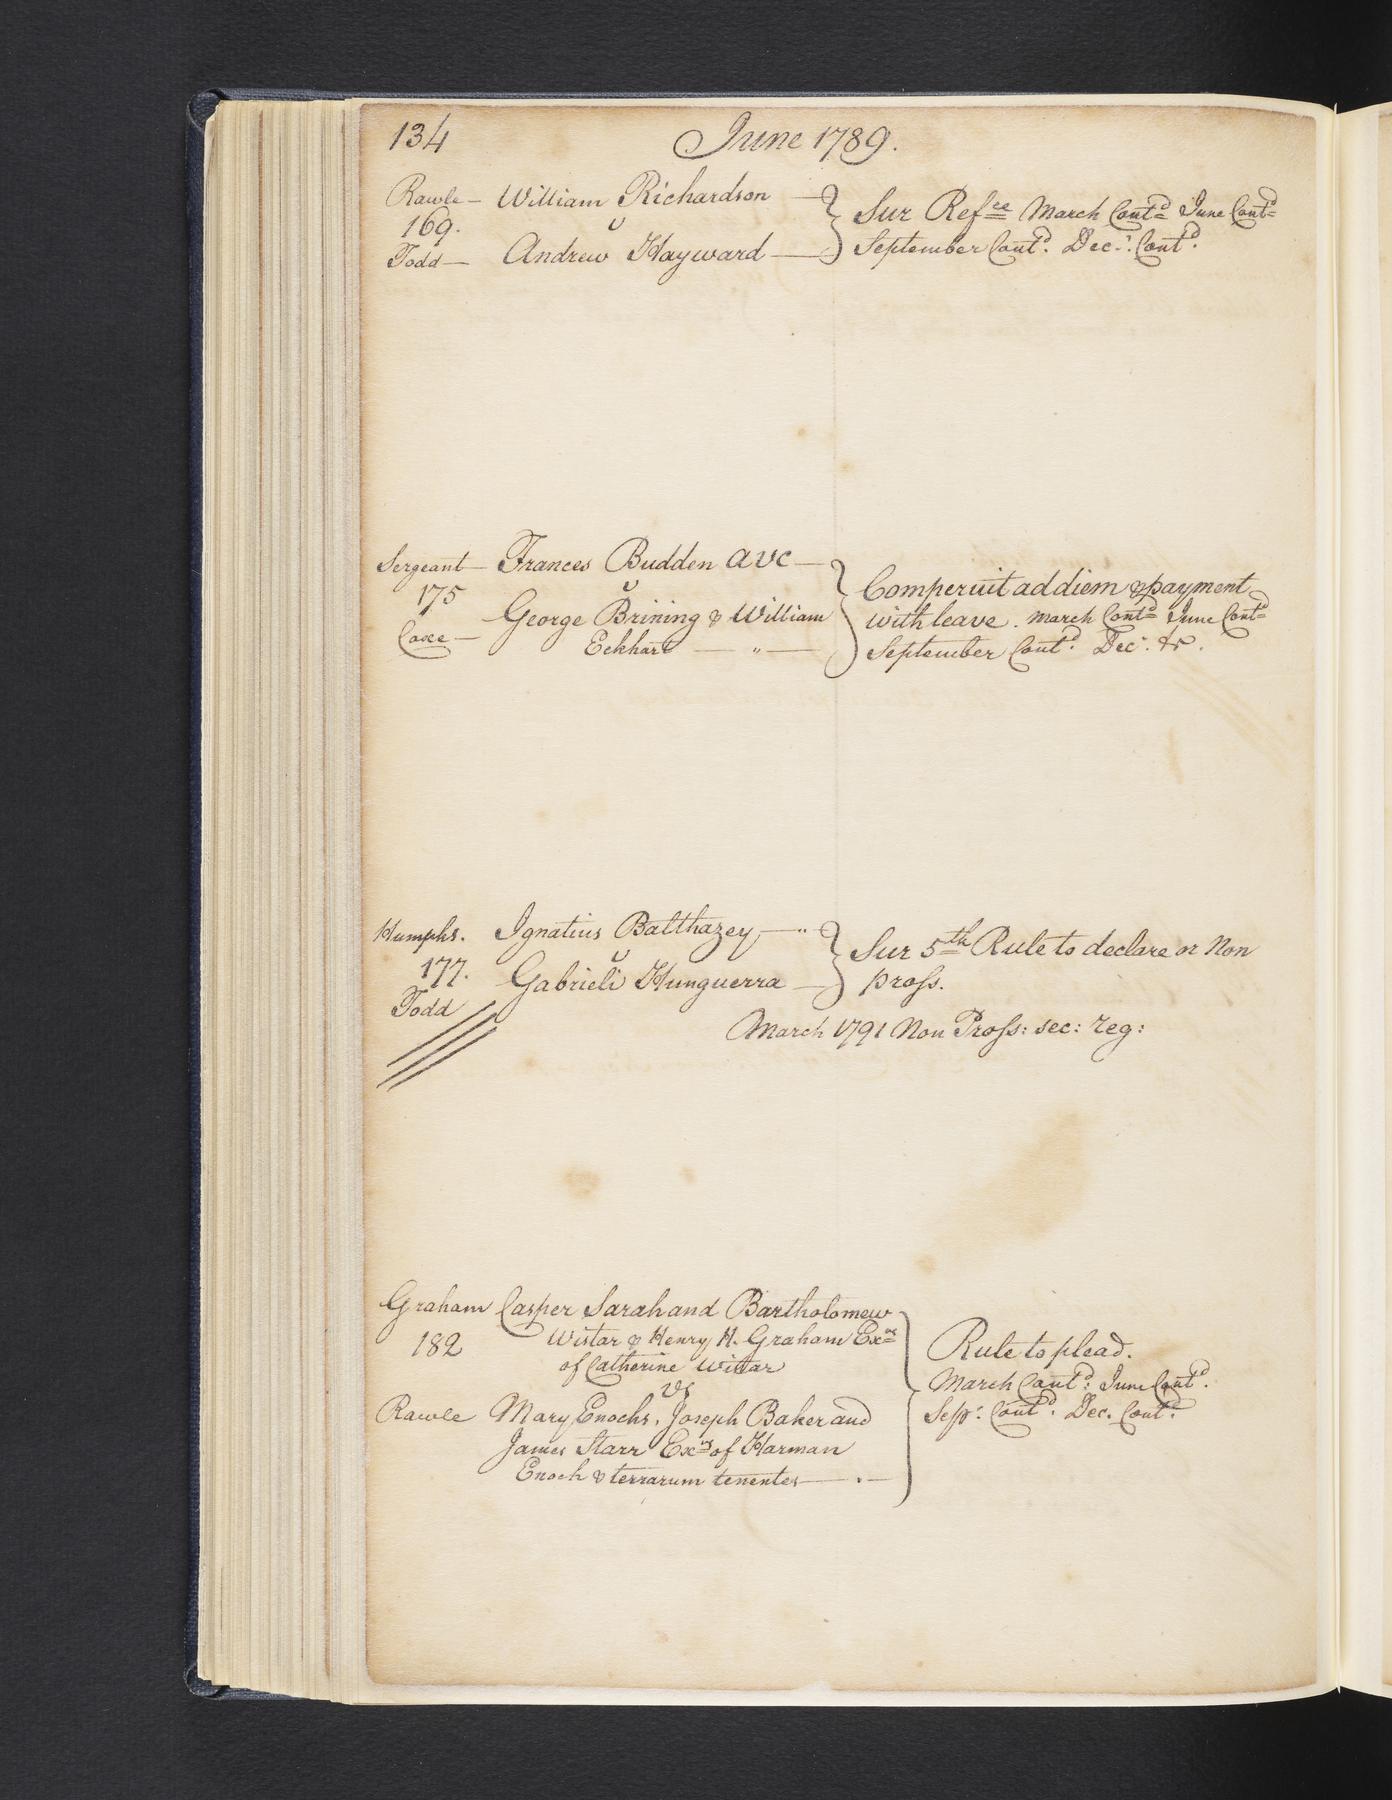 134 June 1789.
Rawle — William Richardson — Sur Ref.ce March Cont.d June Cont.d
169. v
Todd — Andrew Hayward — September Cont.d Dec.r Cont.d
Sergeant — Frances Budden avc —
175 v Comperuit ad diem & payment
George Brining & William with leave. March Cont.d June Cont.d
Coxe — Eckhart — " — September Cont.d Dec.r &c.
Humphs. Ignatius Balthazey — " Sur 5th Rule to declare or Non
177. v
Todd Gabrieli Hunguerra — pross.
March 1791 Non Pross: sec: reg:
Graham Casper Sarah and Bartholomew
182 Wistar & Henry H. Graham Ex.rs Rule to plead.
of Catherine Wistar March Cont.d: June Cont.d.
vs
Rawle Mary Enochs, Joseph Baker and Sep.r Cont.d. Dec. Cont.d
James Starr Ex.rs of Harman
Enoch & terrarum tenentes — . —